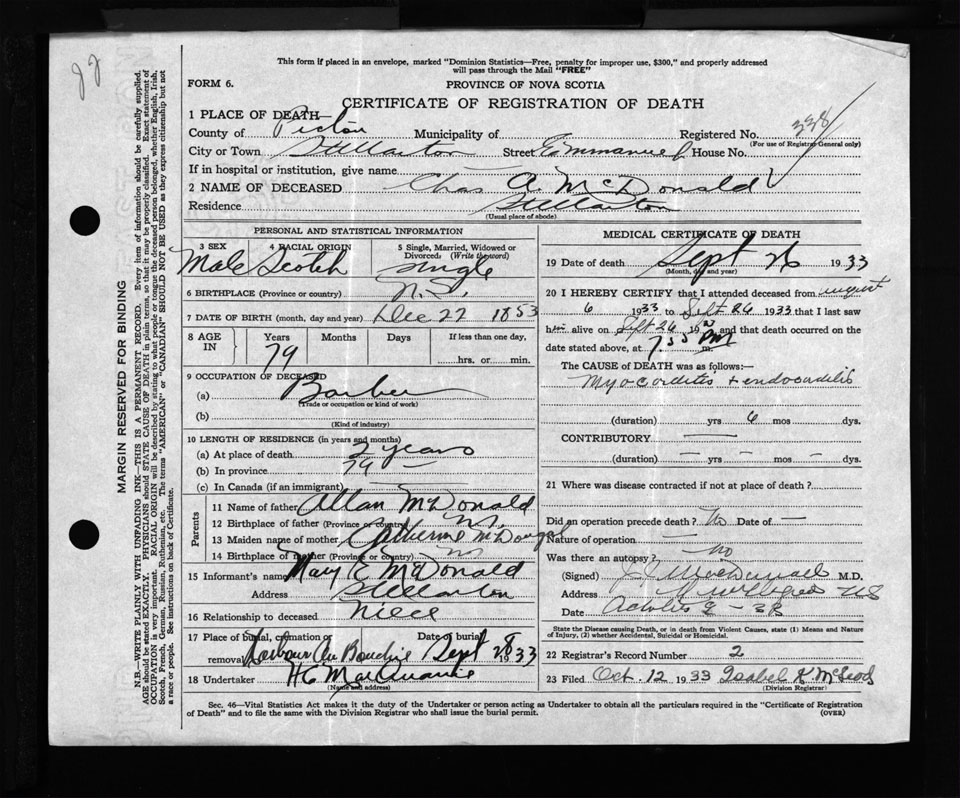 This form if placed in an envelope, marked "Dominion Statistics—Free, penalty for improper use, $300," and properly addressed
will pass through the Mail "FREE"
FORM 6.
PROVINCE OF NOVA SCOTIA
CERTIFICATE OF REGISTRATION OF DEATH
1 PLACE OF DEATH—
County of Pictou Municipality of Registered No. 338
(For use of Registrar General only)
City or Town Stellarton Street House No.
If in hospital or institution, give name
2 NAME OF DECEASED Chas A. McDonald
Residence Stellarton
(Usual place of abode)
PERSONAL AND STATISTICAL INFORMATION
3 SEX 4 RACIAL ORIGIN 5 Single, Married, Widowed or
Divorced (Write the word)
Male Scotch Single
6 BIRTHPLACE (Province or country) N.S.
7 DATE OF BIRTH (month, day and year) Dec 22 1853
8 AGE IN Years Months Days If less than one day,
79 hrs. or min.
9 OCCUPATION OF DECEASED
(a) Barber
(Trade or occupation or kind of work)
(b)
(Kind of industry)
10 LENGTH OF RESIDENCE (in years and months)
(a) At place of death 2 years
(b) In province 79 —
(c) In Canada (if an immigrant)
Parents
11 Name of father Allan McDonald
12 Birthplace of father (Province or country)
13 Maiden name of mother Catherine
14 Birthplace of mother (Province or country)
15 Informant's name Mary E McDonald
Address Stellarton
16 Relationship to deceased Niece
17 Place of burial, cremation or Date of burial
removal Harbour Au Bouchie Sept 28 1933
18 Undertaker
(Name and address)
MEDICAL CERTIFICATE OF DEATH
19 Date of death Sept 26 1933
(Month, day and year)
20 I HEREBY CERTIFY that I attended deceased from august
6 1933 to Sept 26 1933 that I last saw
him alive on Sept 26 19 and that death occurred on the
date stated above, at 7.55 PM m.
The CAUSE of DEATH was as follows:—
Myocarditis + endocarditis
(duration) yrs 6 mos dys.
CONTRIBUTORY —
(duration) — yrs — mos — dys.
21 Where was disease contracted if not at place of death?
Did an operation precede death? No Date of —
Nature of operation —
Was there an autopsy? no
(Signed) M.D.
Address NS
Date
State the Disease causing Death, or in death from Violent Causes, state (1) Means and Nature
of Injury, (2) whether Accidental, Suicidal or Homicidal.
22 Registrar's Record Number 2
23 Filed Oct. 12 1933 Isabel K McLeod
(Division Registrar)
Sec. 46—Vital Statistics Act makes it the duty of the Undertaker or person acting as Undertaker to obtain all the particulars required in the "Certificate of Registration
of Death" and to file the same with the Division Registrar who shall issue the burial permit.
(OVER)
MARGIN RESERVED FOR BINDING
N.B.—WRITE PLAINLY WITH UNFADING INK—THIS IS A PERMANENT RECORD. Every item of information should be carefully supplied.
AGE should be stated EXACTLY. PHYSICIANS should STATE CAUSE OF DEATH in plain terms, so that it may be properly classified. Exact statement of
OCCUPATION is very important. RACIAL ORIGIN will be described by stating to what people or tongue the deceased person belonged, whether English, Irish,
Scotch, French, German, Russian, Ruthenian, etc. The terms "AMERICAN" or "CANADIAN" SHOULD NOT BE USED as they express citizenship but not
a race or people. See instructions on back of Certificate.